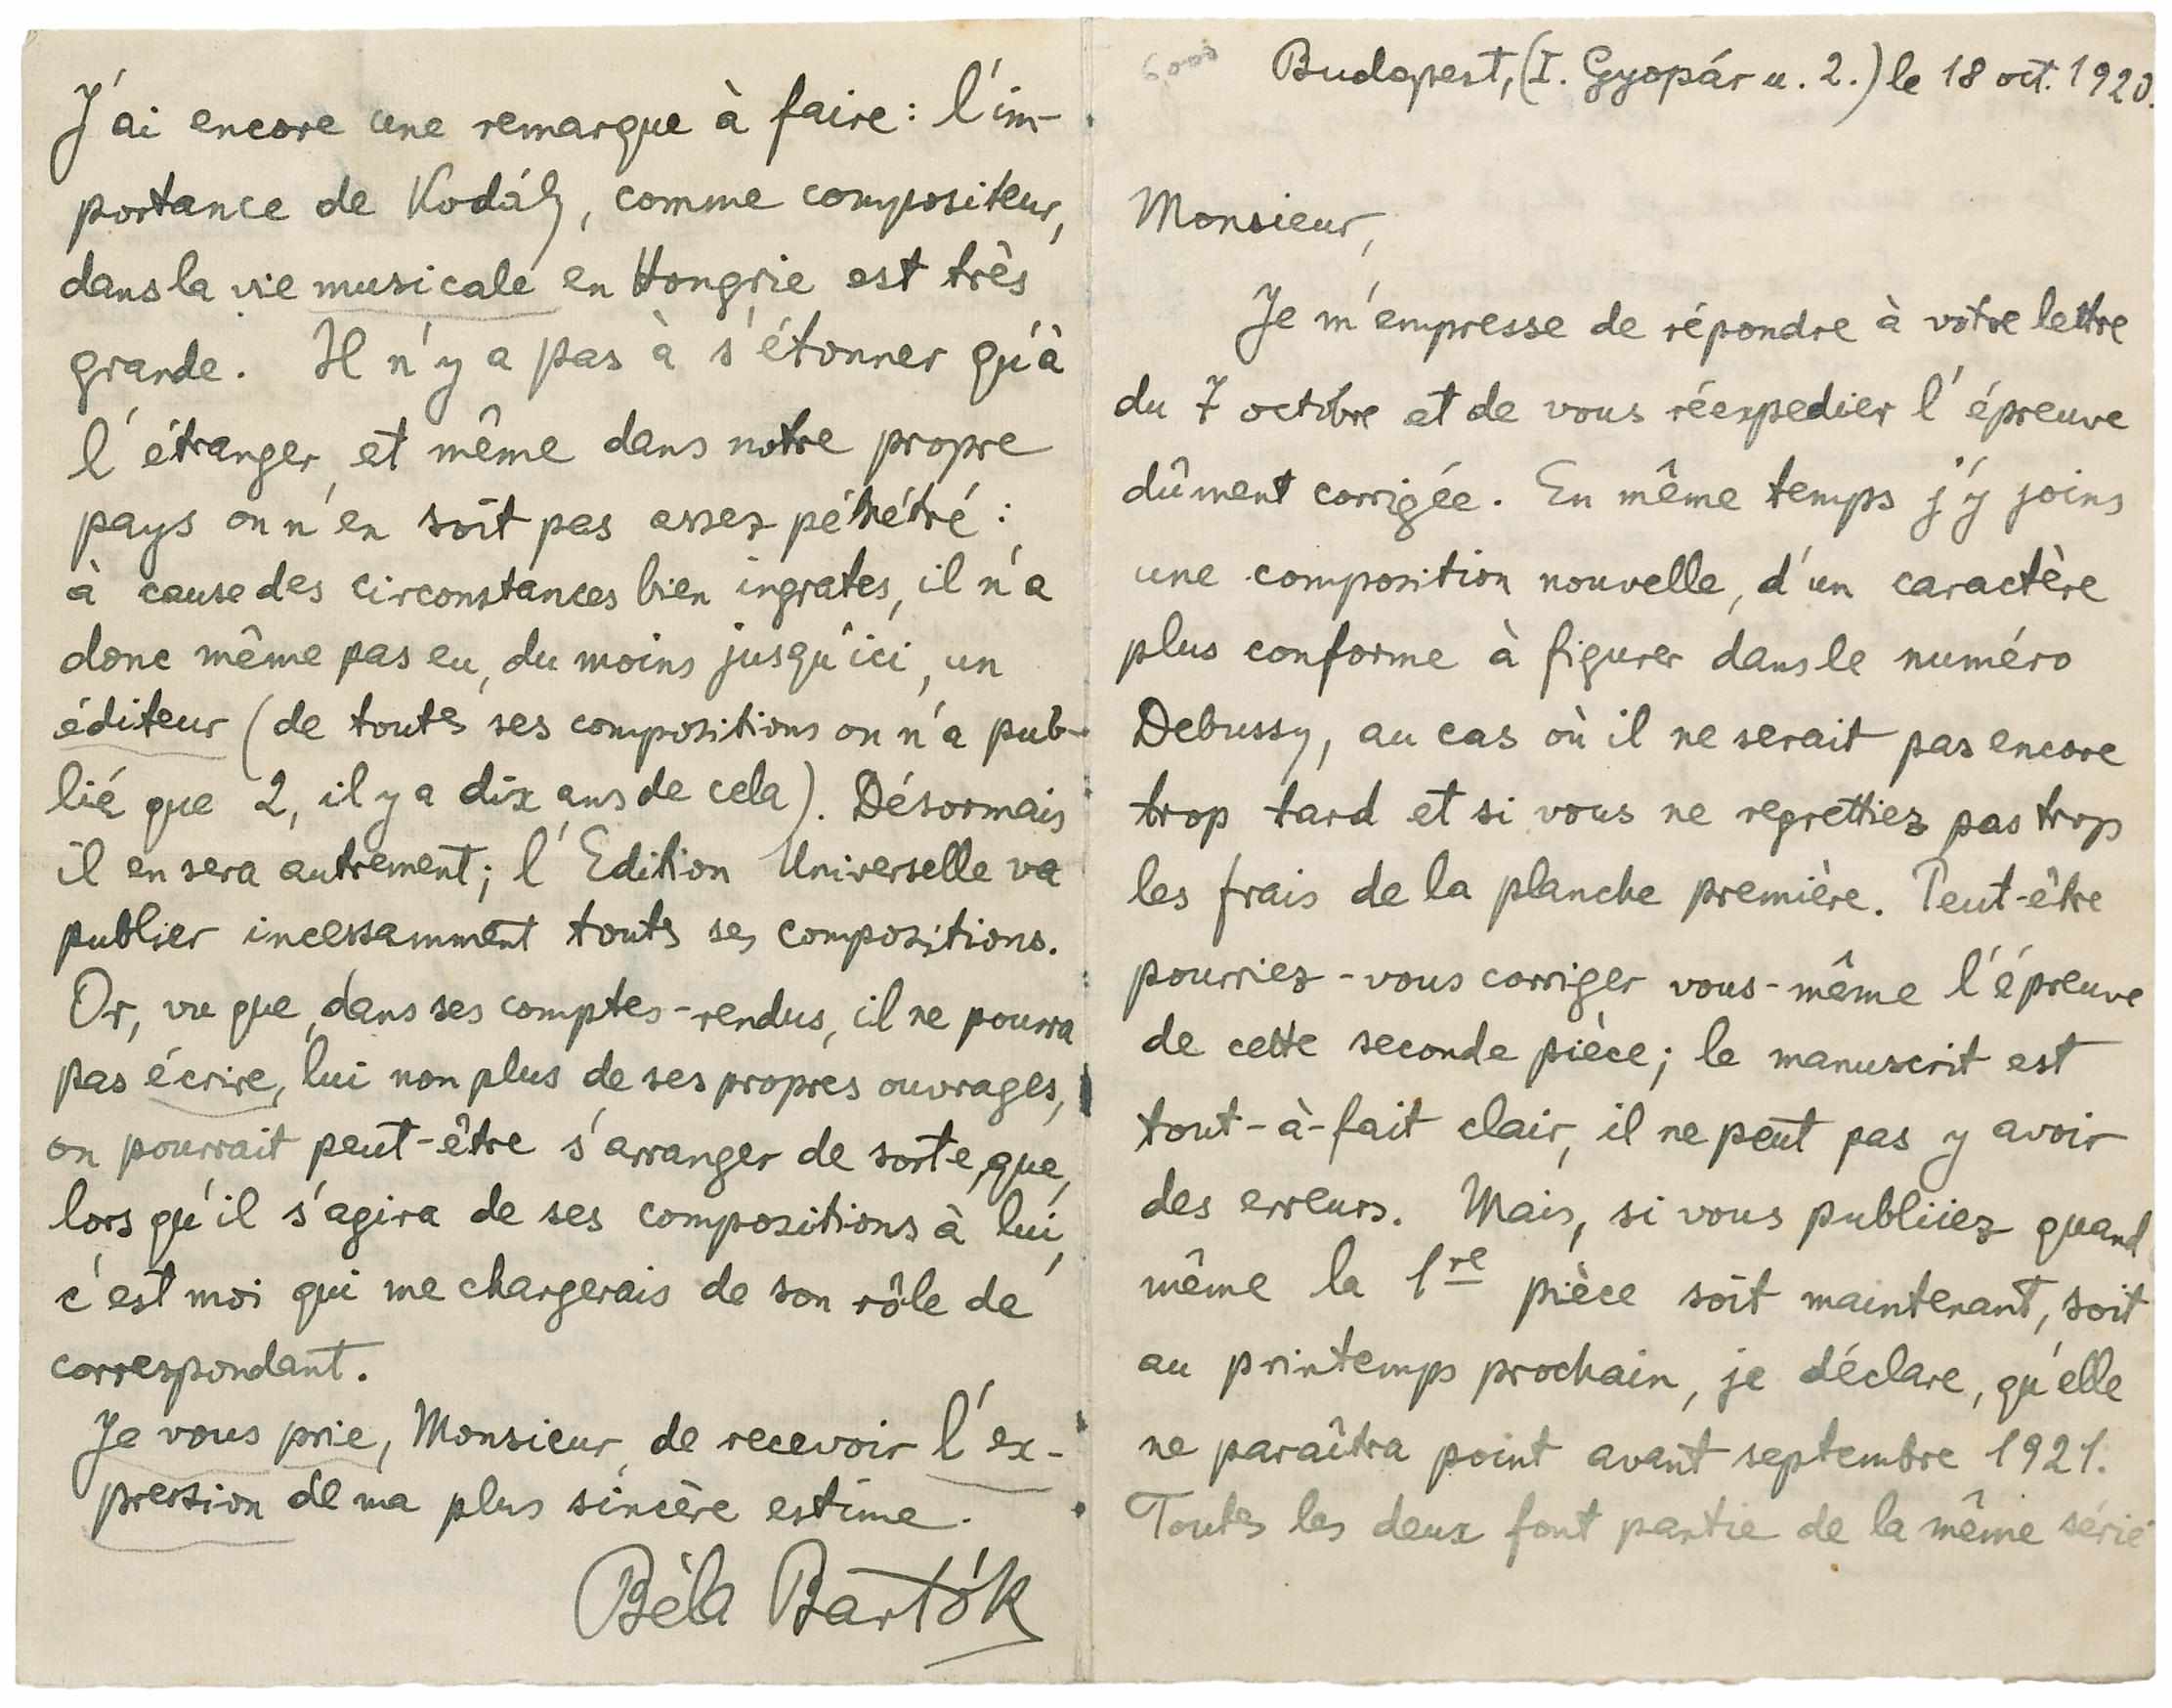 6000
Budapest, (I. Gyopár u. 2.) le 18 oct. 1920.
Monsieur,
Je m'empresse de répondre à votre lettre
du 7 octobre et de vous réexpedier l'épreuve
dûment corrigée. En même temps j'y joins
une composition nouvelle, d'un caractère
plus conforme à figurer dans le numéro
Debussy, au cas où il ne serait pas encore
trop tard et si vous ne regrettiez pas trop
les frais de la planche première. Peut-être
pourriez-vous corriger vous-même l'épreuve
de cette seconde pièce; le manuscrit est
tout-à-fait clair, il ne peut pas y avoir
des erreurs. Mais, si vous publiiez quand
même la 1re pièce soit maintenant, soit
au printemps prochain, je déclare, qu'elle
ne paraîtra point avant septembre 1921.
Toutes les deux font partie de la même série
J'ai encore une remarque à faire: l'im-
portance de Kodály, comme compositeur,
dans la vie musicale en Hongrie est très
grande. Il n'y a pas à s'étonner qu'à
l'étranger et même dans notre propre
pays on n'en soit pas assez pénétré:
à cause des circonstances bien ingrates, il n'a
donc même pas eu, du moins jusqu'ici, un
éditeur (de toutes ses compositions on n'a pub-
lié que 2, il y a dix ans de cela). Désormais
il en sera autrement; l'Edition Universelle va
publier incessamment toutes ses compositions.
Or, vu que, dans ses comptes-rendus, il ne pourra
pas écrire, lui non plus de ses propres ouvrages,
on pourrait peut-être s'arranger de sorte, que,
lorsqu'il s'agira de ses compositions à lui,
c'est moi qui me chargerais de son rôle de
correspondant.
Je vous prie, Monsieur, de recevoir l'ex-
pression de ma plus sincère estime.
Béla Bartók